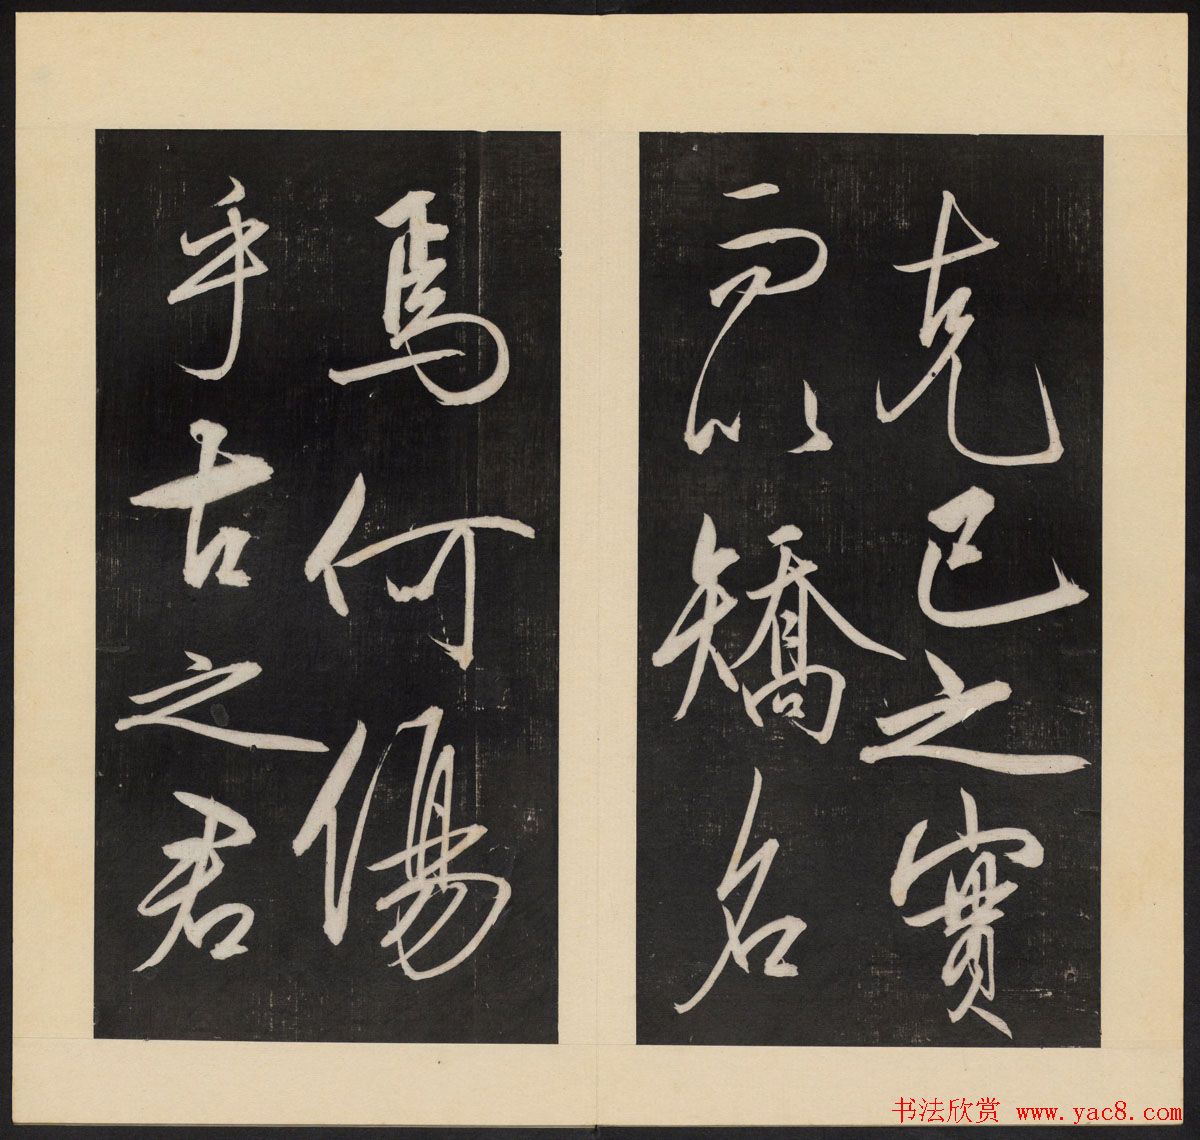 克己之實
而以矯名
焉何傷
乎古之君
书法欣赏 www.yac8.com